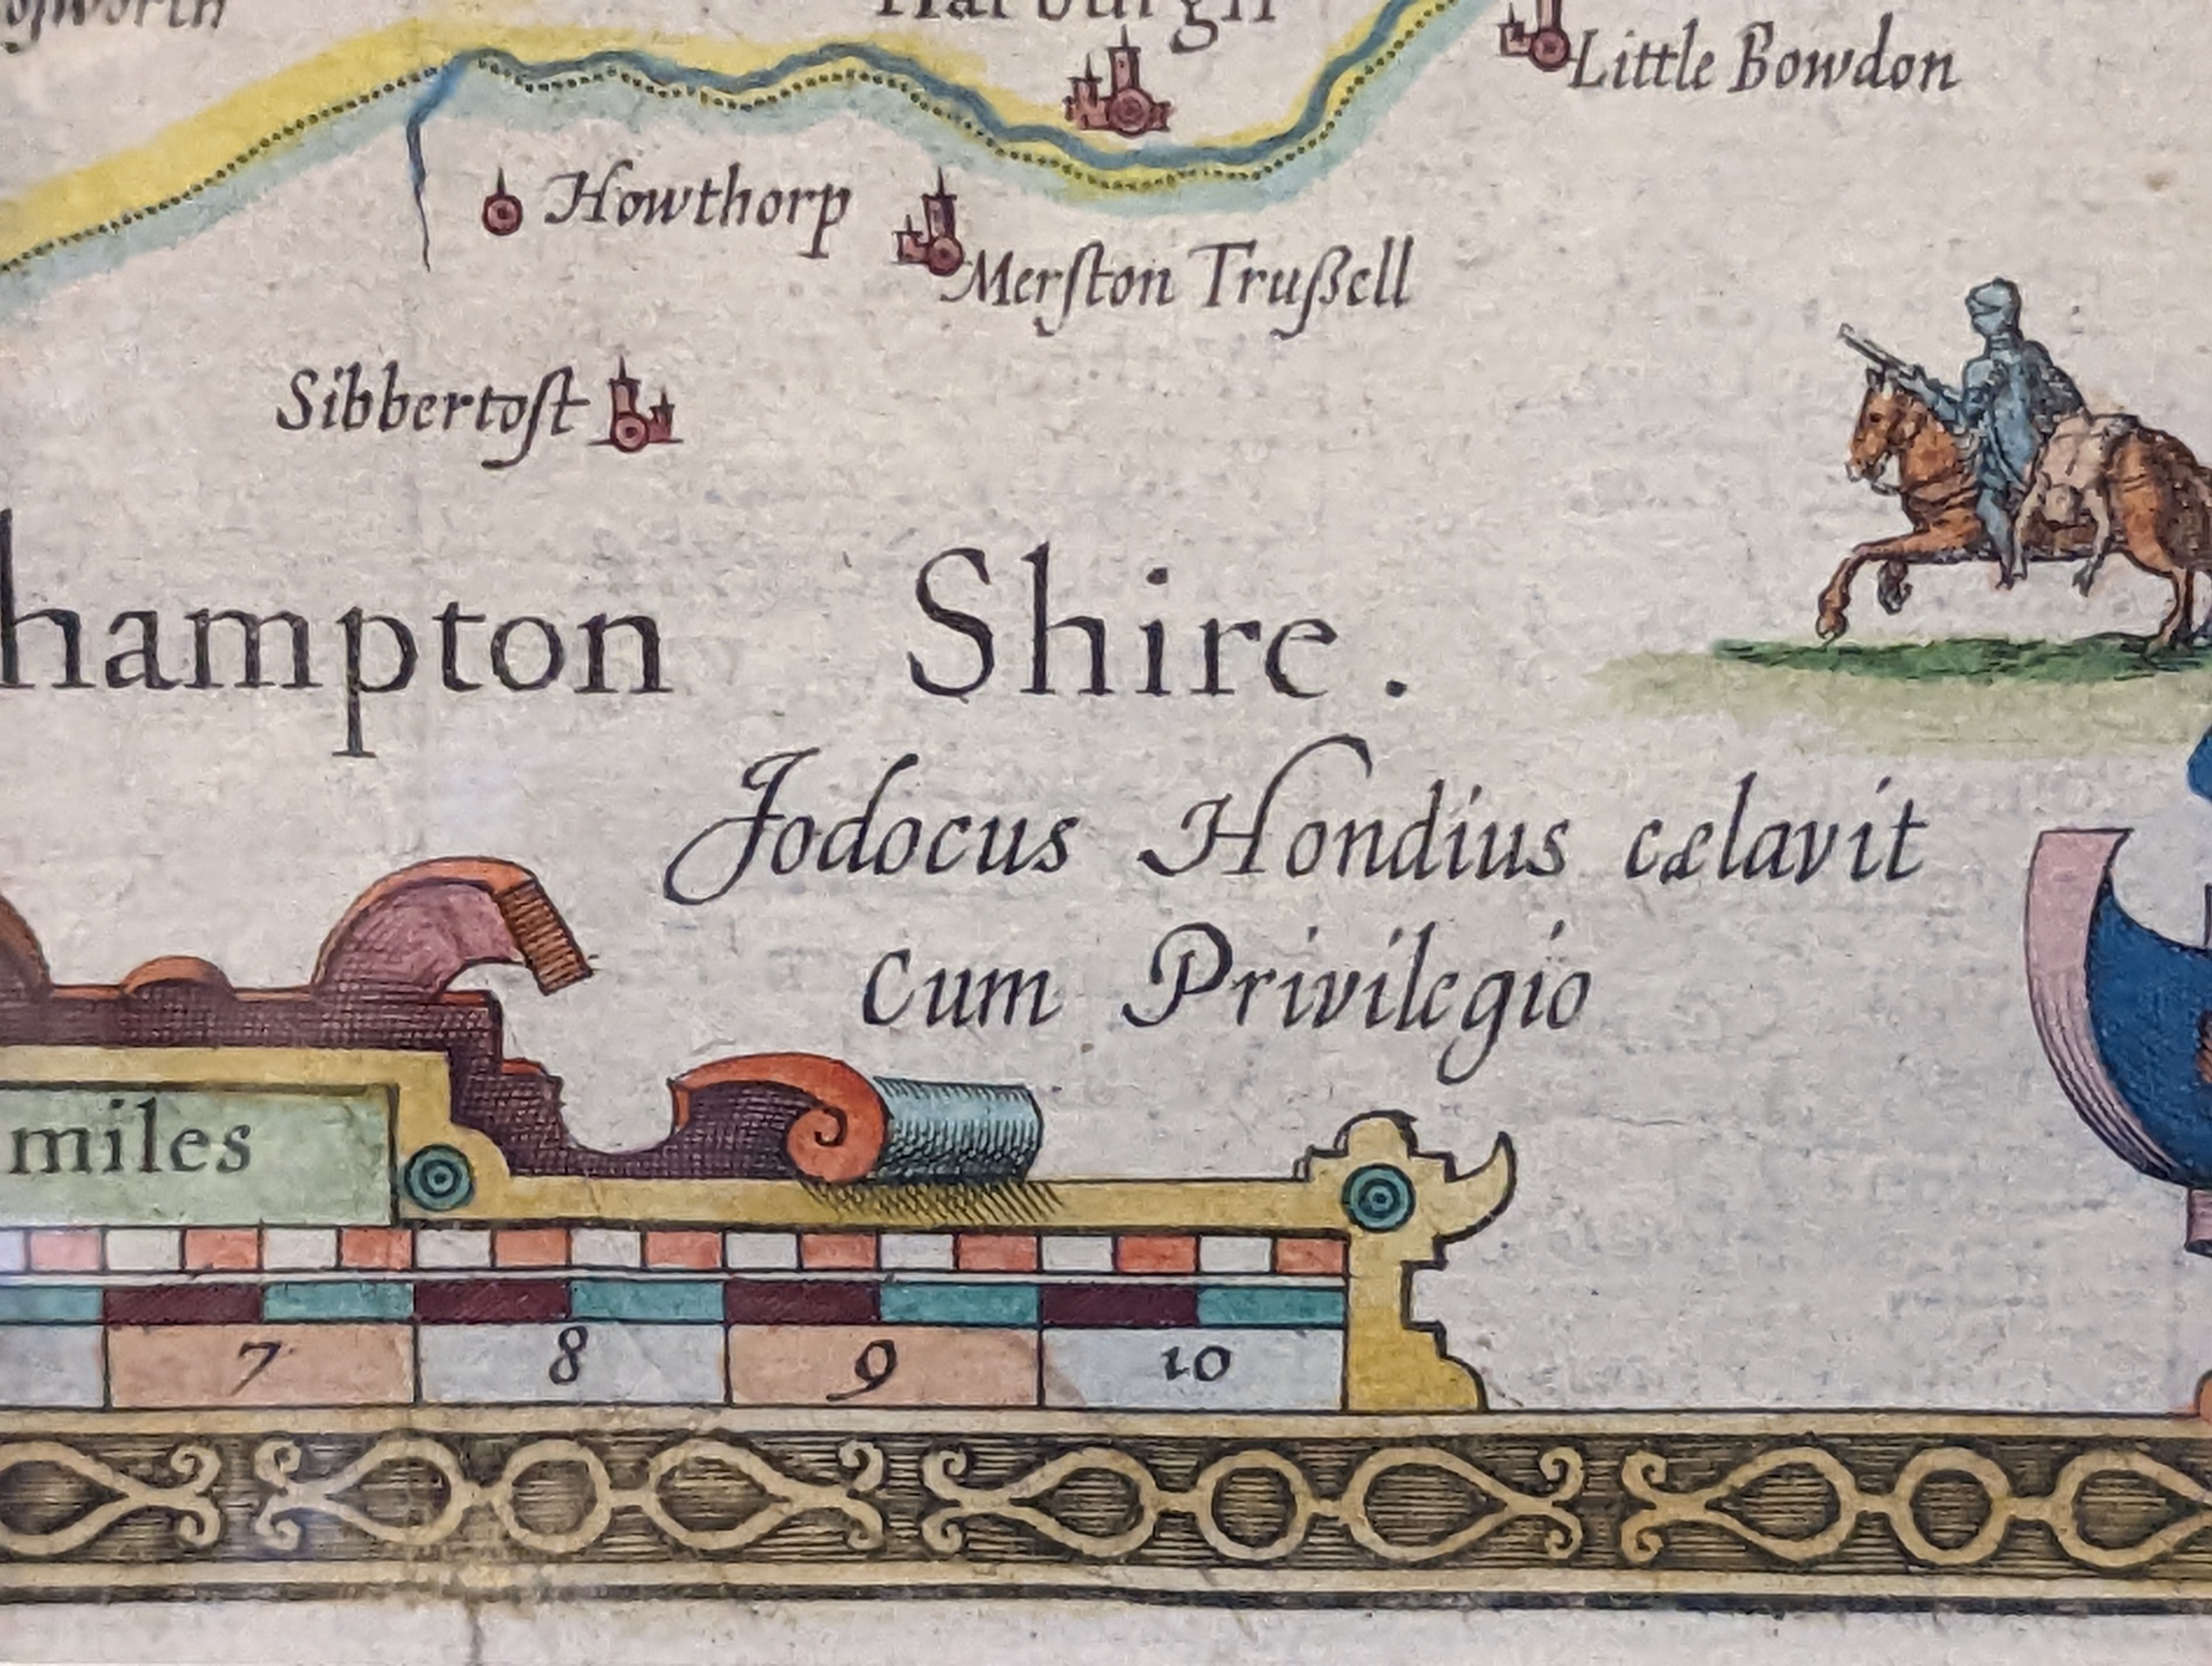 Harburgh
Little Bowdon
Howthorp
Merſton Trußell
Sibbertoſt
hampton Shire.
Jodocus Hondius cælavit
Cum Privilegio
miles
7 8 9 10